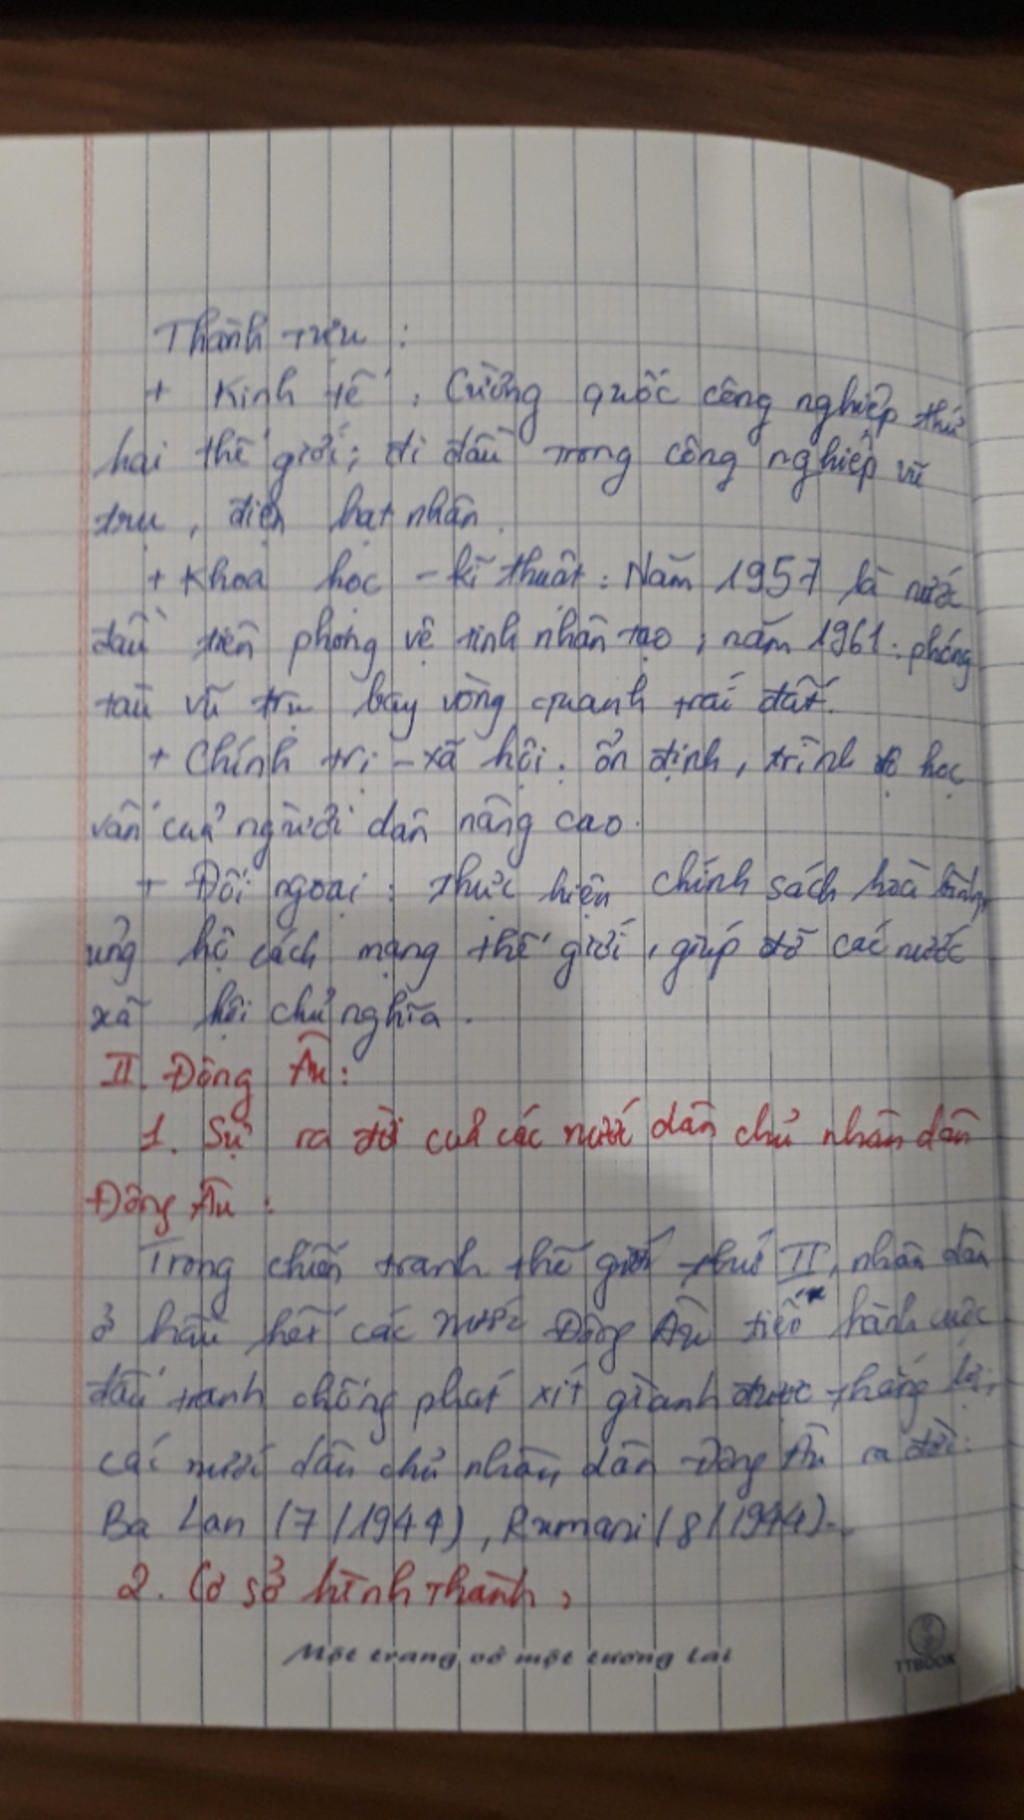 Thành tựu :
+ Kinh tế : Cường quốc công nghiệp thứ
hai thế giới; đi đầu trong công nghiệp vũ
trụ, điện hạt nhân.
+ Khoa học - kĩ thuật : Năm 1957 là nước
đầu tiên phóng vệ tinh nhân tạo, năm 1961 : phóng
tàu vũ trụ bay vòng quanh trái đất.
+ Chính trị - xã hội : ổn định, trình độ học
vấn của người dân nâng cao.
+ Đối ngoại : thực hiện chính sách hoà bình,
ủng hộ cách mạng thế giới, giúp đỡ các nước
xã hội chủ nghĩa.
II. Đông Âu :
1. Sự ra đời của các nước dân chủ nhân dân
Đông Âu :
Trong chiến tranh thế giới thứ II, nhân dân
ở hầu hết các nước Đông Âu tiến hành cuộc
đấu tranh chống phát xít giành được thắng lợi,
các nước dân chủ nhân dân Đông Âu ra đời :
Ba Lan (7/1944), Rumani (8/1944)...
2. Cơ sở hình thành :
Một trang vở một tương lai
TTBOOK